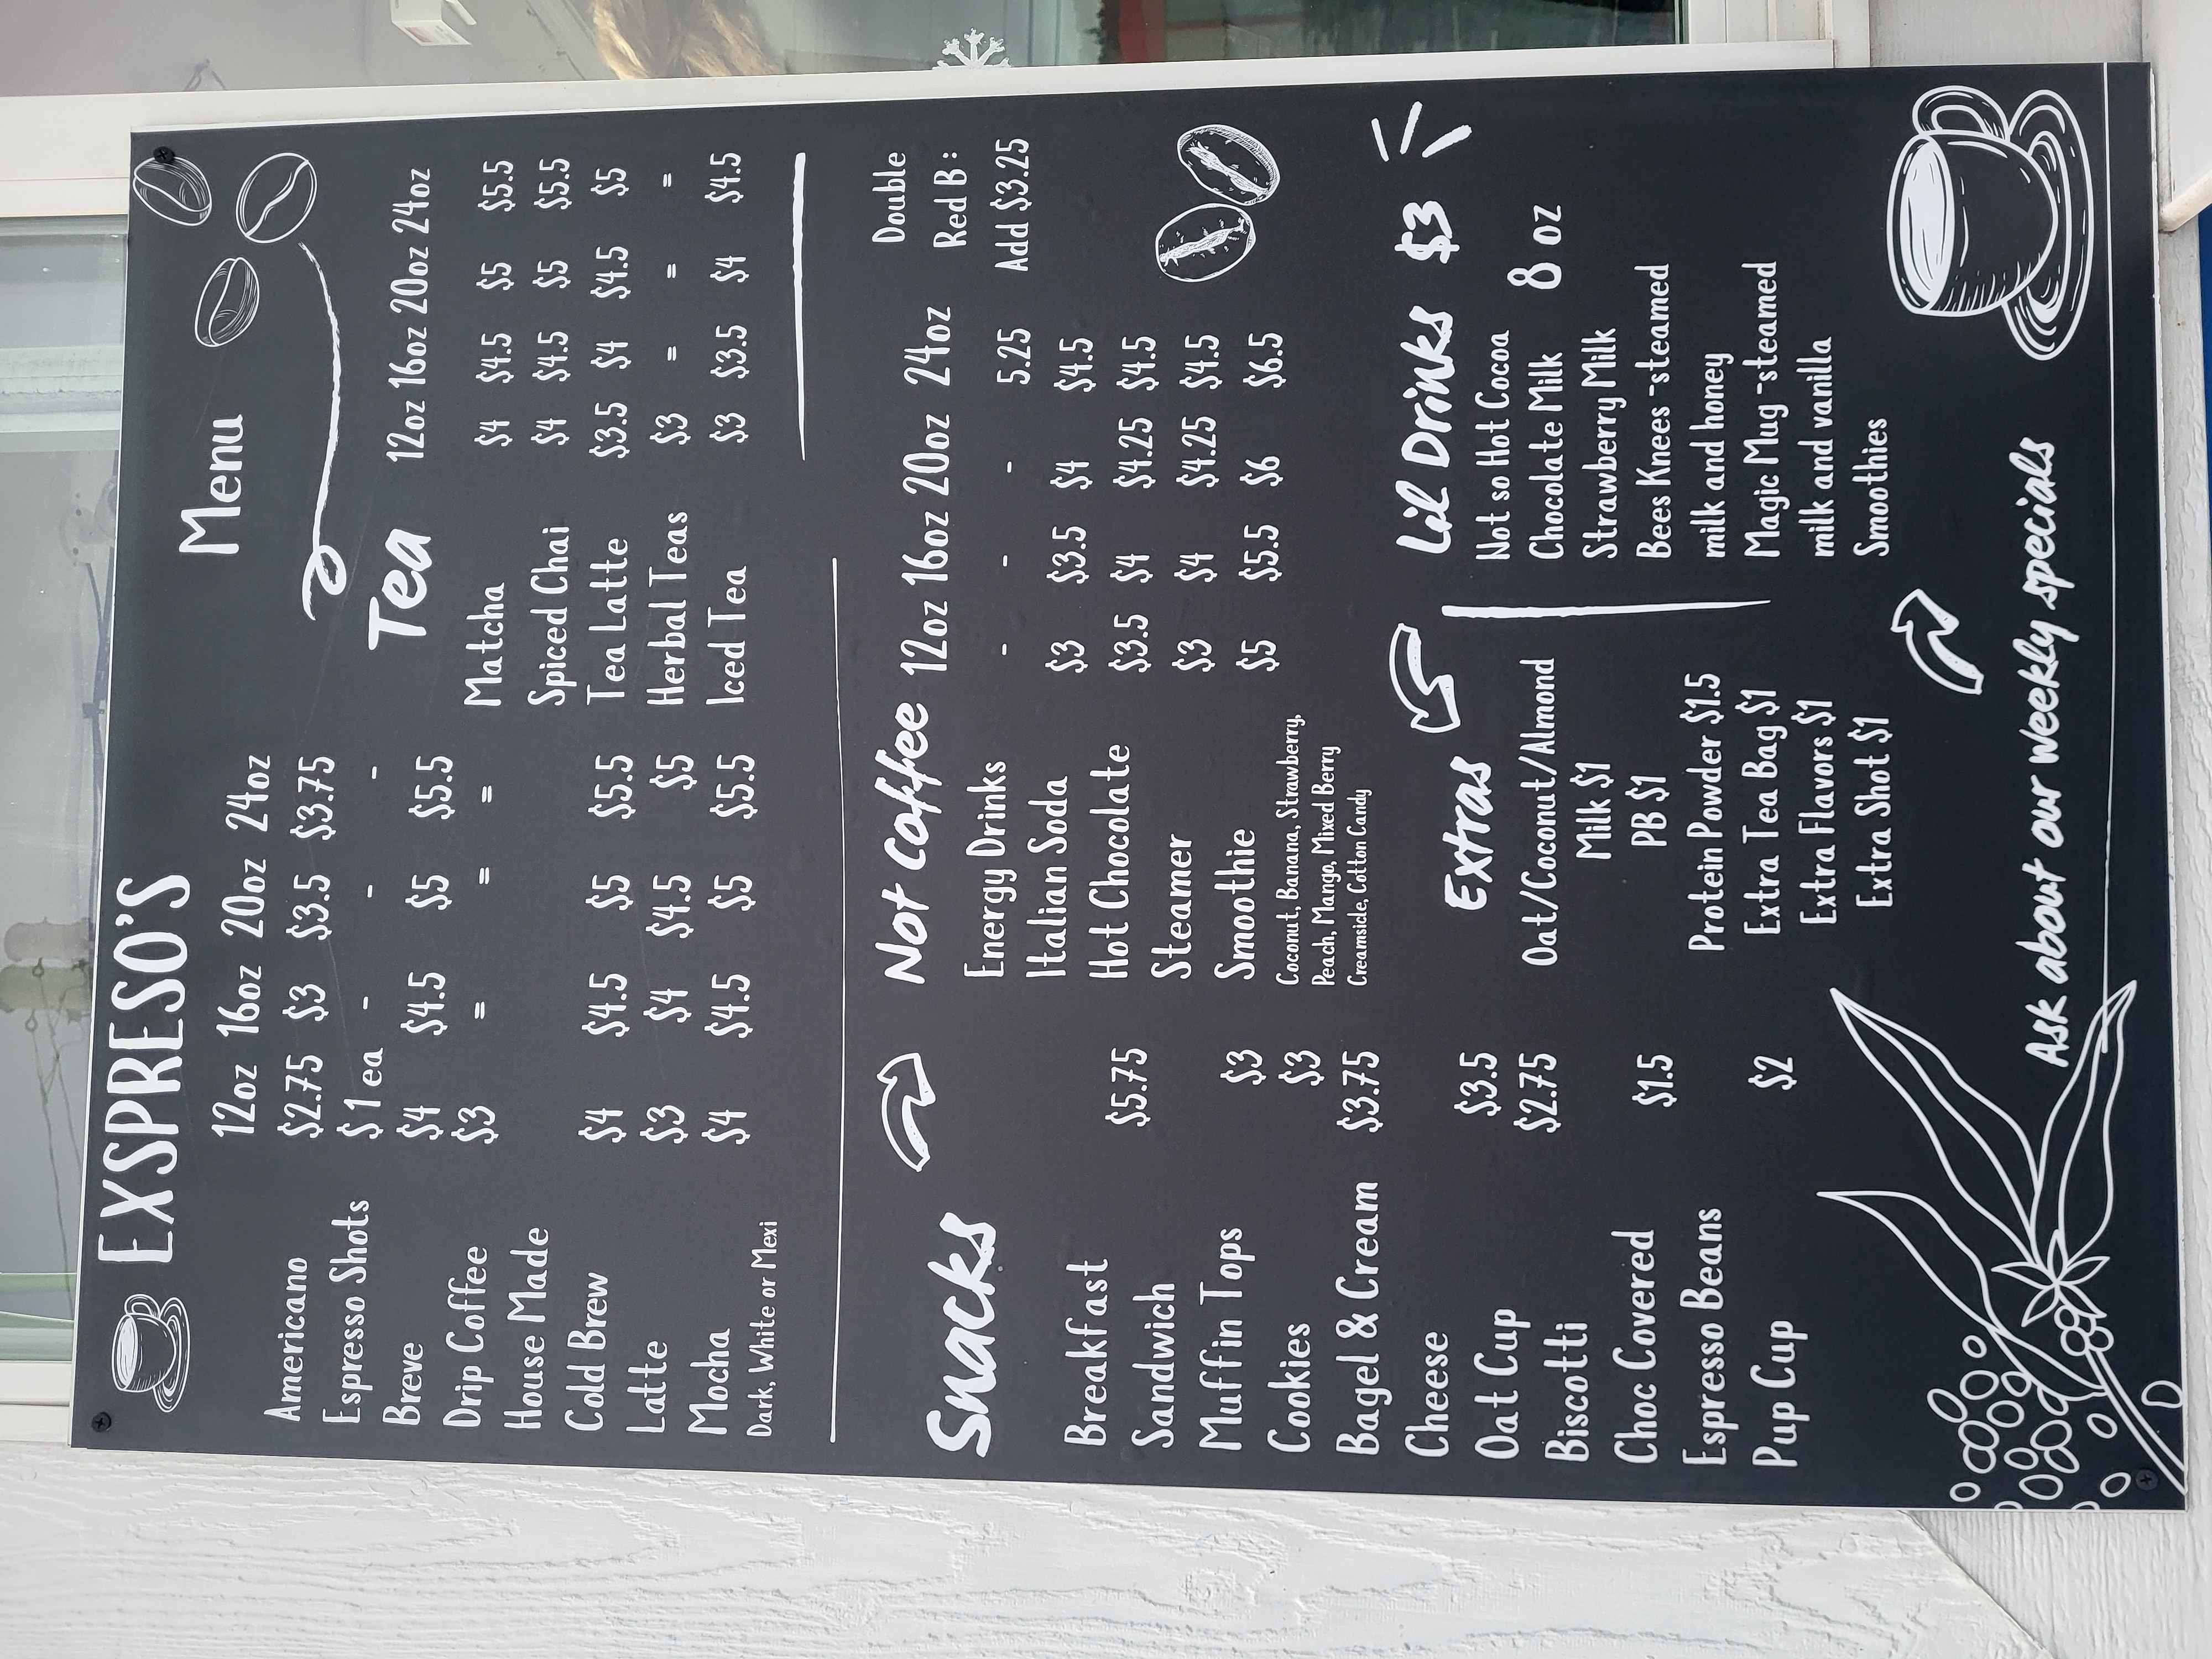 EXSPRESO'S
Menu
12oz 16oz 20oz 24oz
Americano $2.75 $3 $3.5 $3.75
Espresso Shots $1 ea - - -
Breve $4 $4.5 $5 $5.5
Drip Coffee $3 = = =
House Made
Cold Brew $4 $4.5 $5 $5.5
Latte $3 $4 $4.5 $5
Mocha $4 $4.5 $5 $5.5
Dark, White or Mexi
Tea 12oz 16oz 20oz 24oz
Matcha $4 $4.5 $5 $5.5
Spiced Chai $4 $4.5 $5 $5.5
Tea Latte $3.5 $4 $4.5 $5
Herbal Teas $3 = = =
Iced Tea $3 $3.5 $4 $4.5
Snacks
Breakfast
Sandwich $5.75
Muffin Tops $3
Cookies $3
Bagel & Cream $3.75
Cheese
Oat Cup $3.5
Biscotti $2.75
Choc Covered $1.5
Espresso Beans
Pup Cup $2
Not Coffee 12oz 16oz 20oz 24oz
Energy Drinks - - - 5.25
Italian Soda $3 $3.5 $4 $4.5
Hot Chocolate $3.5 $4 $4.25 $4.5
Steamer $3 $4 $4.25 $4.5
Smoothie $5 $5.5 $6 $6.5
Coconut, Banana, Strawberry,
Peach, Mango, Mixed Berry
Creamside, Cotton Candy
Double
Red B:
Add $3.25
Extras
Oat/Coconut/Almond
Milk $1
PB $1
Protein Powder $1.5
Extra Tea Bag $1
Extra Flavors $1
Extra Shot $1
Lil Drinks $3
Not so Hot Cocoa
8 oz
Chocolate Milk
Strawberry Milk
Bees Knees -steamed
milk and honey
Magic Mug -steamed
milk and vanilla
Smoothies
Ask about our weekly specials